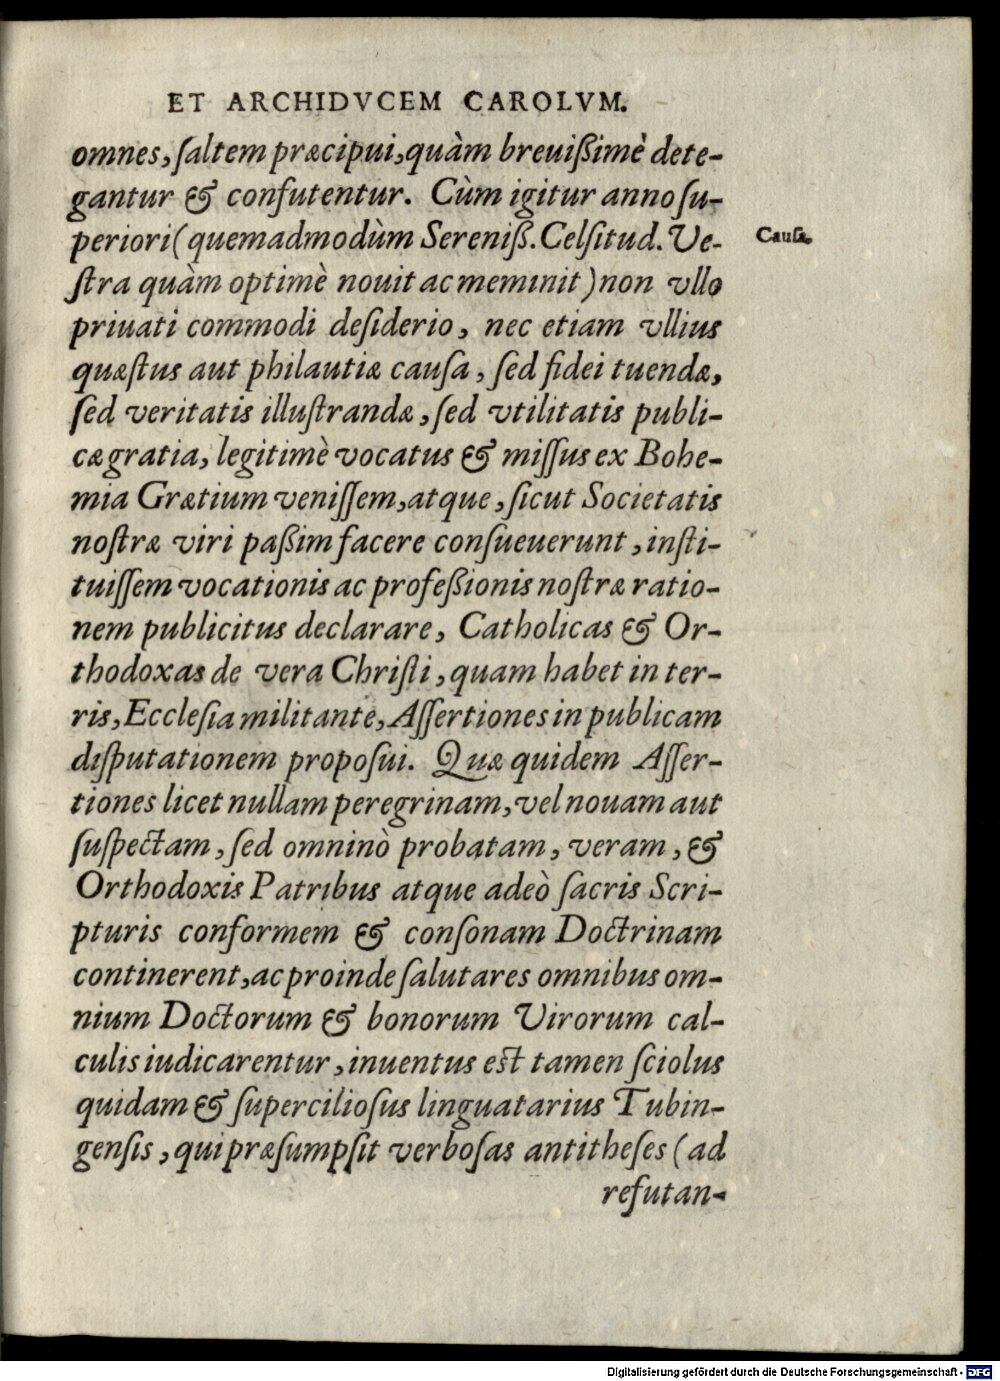 ET ARCHIDVCEM CAROLVM.
omnes, ſaltem præcipui, quàm breuißimè dete-
gantur & confutentur. Cùm igitur anno ſu-
periori (quemadmodùm Sereniß. Celſitud. Ve-
Cauſa.
ſtra quàm optimè nouit ac meminit) non vllo
priuati commodi deſiderio, nec etiam vllius
quæſtus aut philautiæ cauſa, ſed fidei tuendæ,
ſed veritatis illuſtrandæ, ſed vtilitatis publi-
cæ gratia, legitimè vocatus & miſſus ex Bohe-
mia Grætium veniſſem, atque, ſicut Societatis
noſtræ viri paßim facere conſueuerunt, inſti-
tuiſſem vocationis ac profeßionis noſtræ ratio-
nem publicitus declarare, Catholicas & Or-
thodoxas de vera Chriſti, quam habet in ter-
ris, Eccleſia militante, Aſſertiones in publicam
diſputationem propoſui. Quæ quidem Aſſer-
tiones licet nullam peregrinam, vel nouam aut
ſuſpectam, ſed omninò probatam, veram, &
Orthodoxis Patribus atque adeò ſacris Scri-
pturis conformem & conſonam Doctrinam
continerent, ac proinde ſalutares omnibus om-
nium Doctorum & bonorum Virorum cal-
culis iudicarentur, inuentus est tamen ſciolus
quidam & ſupercilioſus linguatarius Tubin-
genſis, qui præſumpſit verboſas antitheſes (ad
refutan-
Digitalisierung gefördert durch die Deutsche Forschungsgemeinschaft - DFG